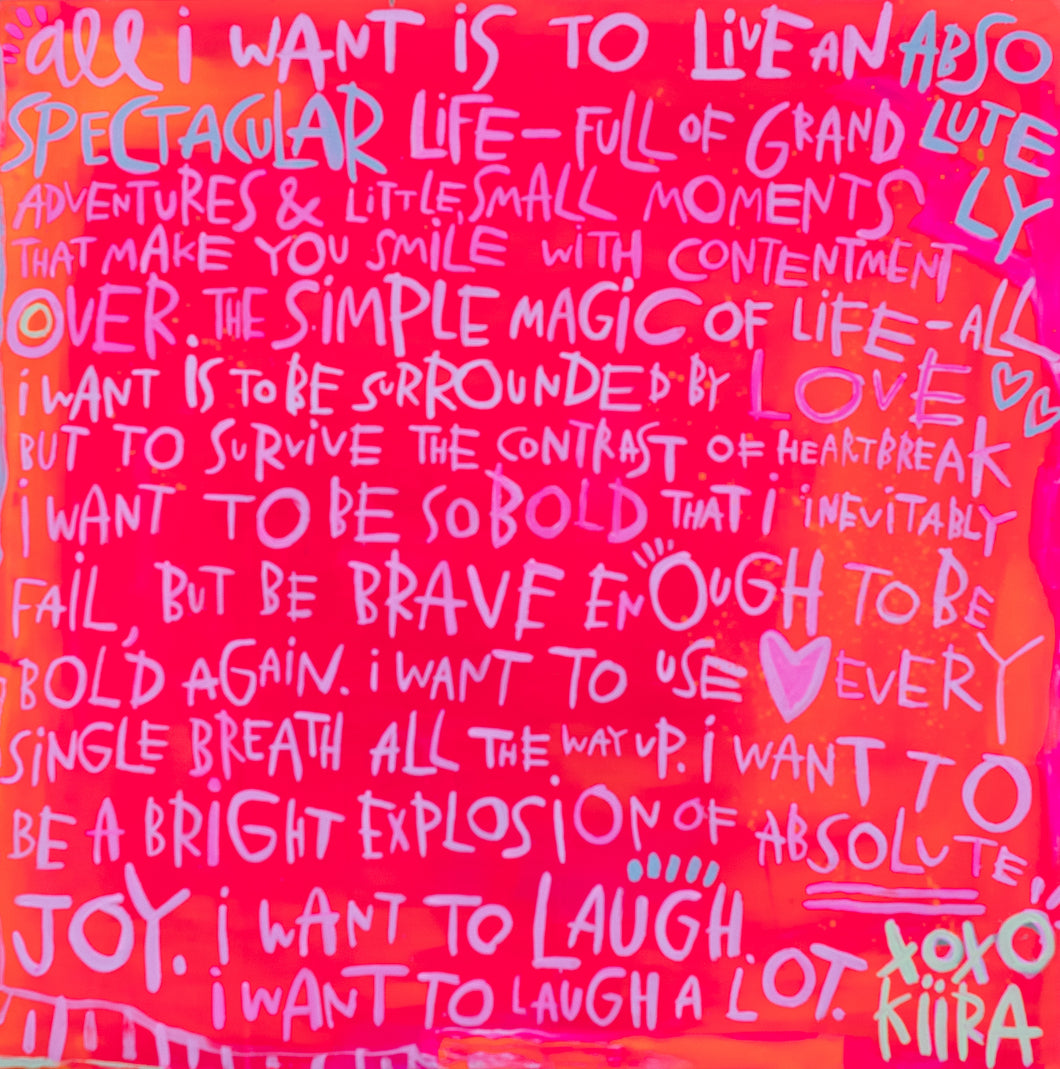 all i WANT IS TO LiVE AN ABSO
LUTE
LY
SPECTACULAR LIFE—FULL OF GRAND
ADVENTURES & LITTLE, SMALL MOMENTS
THAT MAKE YOU SMILE WITH CONTENTMENT
OVER THE SIMPLE MAGIC OF LIFE—ALL
i WANT IS TO BE SURROUNDED BY LOVE
BUT TO SURVIVE THE CONTRAST OF HEARTBREAK
i WANT TO BE SO BOLD THAT i INEVITABLY
FAIL, BUT BE BRAVE ENOUGH TO BE
BOLD AGAIN. i WANT TO USE EVERY
SINGLE BREATH ALL THE WAY UP. i WANT TO
BE A BRIGHT EXPLOSION OF ABSOLUTE
JOY. i WANT TO LAUGH.
i WANT TO LAUGH A LOT.
xoxo
KiiRA